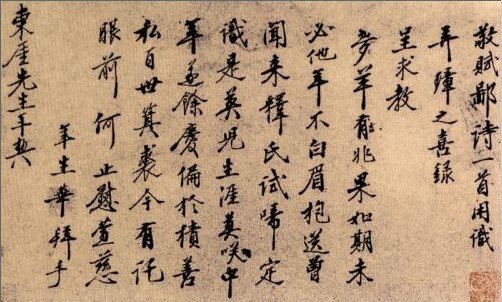 敬賦鄙詩一首用識
弄璋之喜錄
呈求教
夢羊有兆果如期未
必他年不白眉抱送曾
聞來釋氏試啼定
識是英児生涯莫咲中
年餘慶偏於積善
私百世箕裘今有託
眼前何止慰萱慈
年生華拜手
東厓先生年契